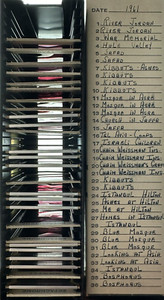 DATE 1961
1 RIVER JORDAN
2 RIVER JORDAN
3 WAR MEMORIAL
4 HULA VALLEY
5 SAFAD
6 SAFAD
7 KIBBUTZ
8 KIBBUTZ
9 KIBBUTZ
10 KIBBUTZ
11 MOSQUE IN ACRE
12 MOSQUE IN ACRE
13 MOSQUE IN ACRE
14 CHURCH IN JAFFA
15 JAFFA
16 TEL AVIV
17 ISRAELI CHILDREN
18 CHAIM WEISSMAN INS.
19 CHAIM WEISSMAN INS.
20 CHAIM WEISSMAN
21 CHAIM WEISSMAN INS.
22 KIBBUTZ
23 KIBBUTZ
24 ISTANBUL HILTON
25 AGNES AT HILTON
26 ME AT HILTON
27 IN ISTANBUL
28 ISTANBUL
29 BLUE MOSQUE
30 BLUE MOSQUE
31 BLUE MOSQUE
32 LOOKING AT ASIA
33 LOOKING AT ASIA
34 ISTANBUL
35 BOSPHORUS
36 BOSPHORUS